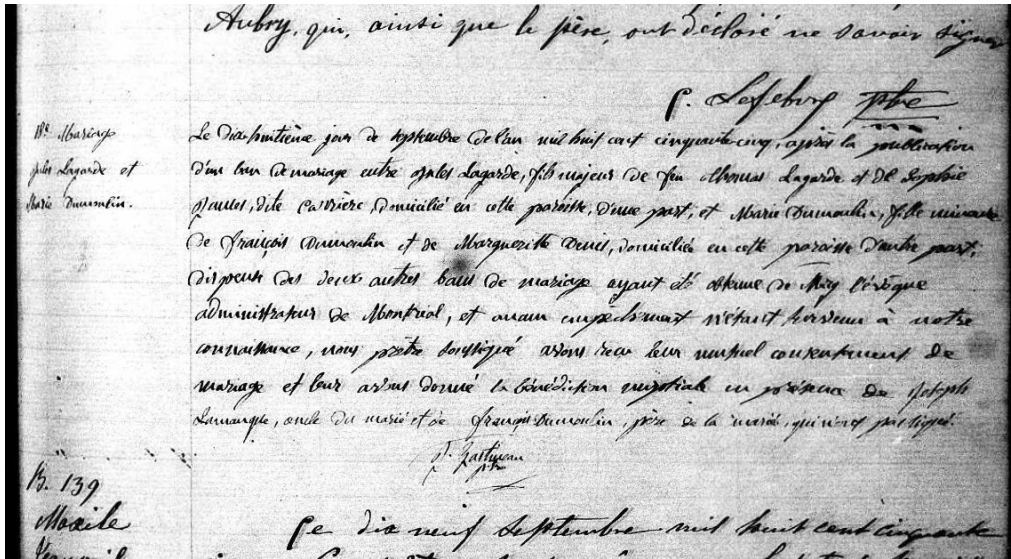 Aubry, qui, ainsi que le père, ont déclaré ne savoir signer
Lefebvre ptre
Mariage
Jules Lagarde et
Marie Dumoulin.
Le dix huitième jour de septembre de l'an mil huit cent cinquante cinq, après la publication
d'un ban de mariage entre Jules Lagarde, fils majeur de feu Thomas Lagarde et de Sophie
dite Carrière, domicilié en cette paroisse, d'une part, et Marie Dumoulin, fille mineure
de François Dumoulin et de Marguerite Denis, domiciliée en cette paroisse d'autre part;
dispense des deux autres bans de mariage ayant été obtenue de Mgr l'évêque
administrateur de Montréal, et aucun empêchement n'étant survenu à notre
connaissance, nous prêtre soussigné avons reçu leur mutuel consentement de
mariage et leur avons donné la bénédiction nuptiale en présence de Joseph
Lamarque, oncle du marié et de François Dumoulin, père de la mariée, qui n'ont pas signé.
ptre
B. 139
Ce dix neuf Septembre mil huit cent cinquante